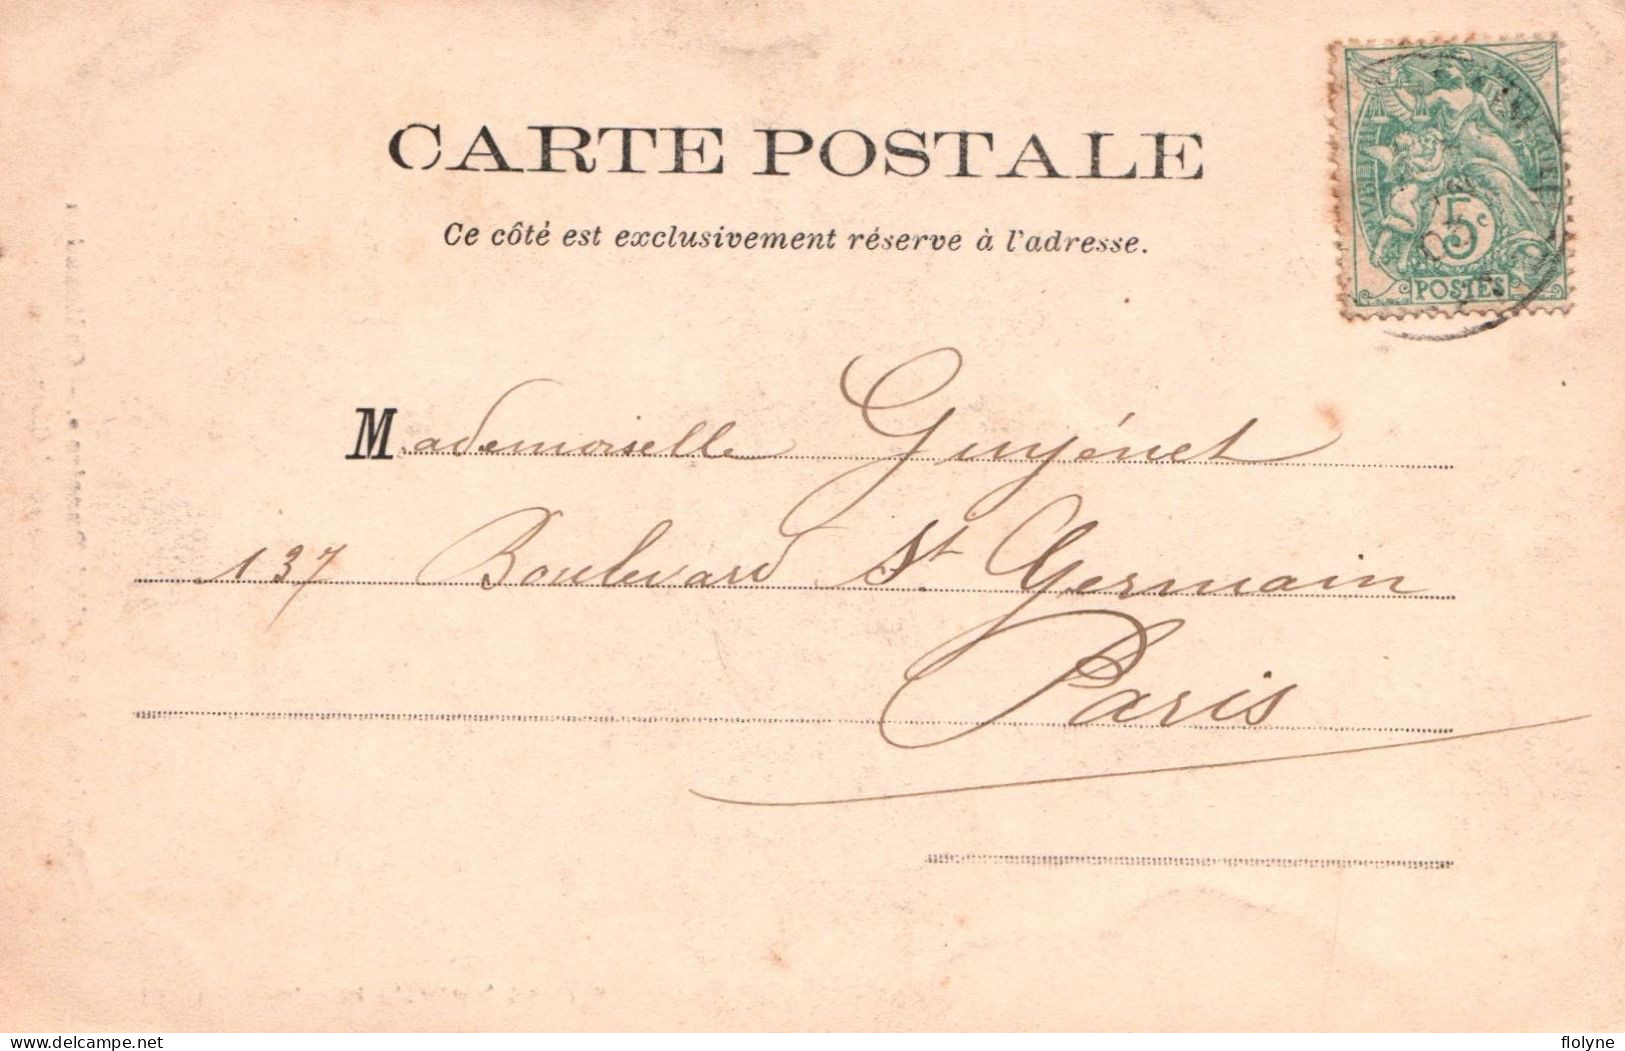 CARTE POSTALE
Ce côté est exclusivement réservé à l'adresse.
5c
POSTES
Mademoiselle Guyénet
137 Boulevard St Germain
Paris
Delcampe.net
flolyne